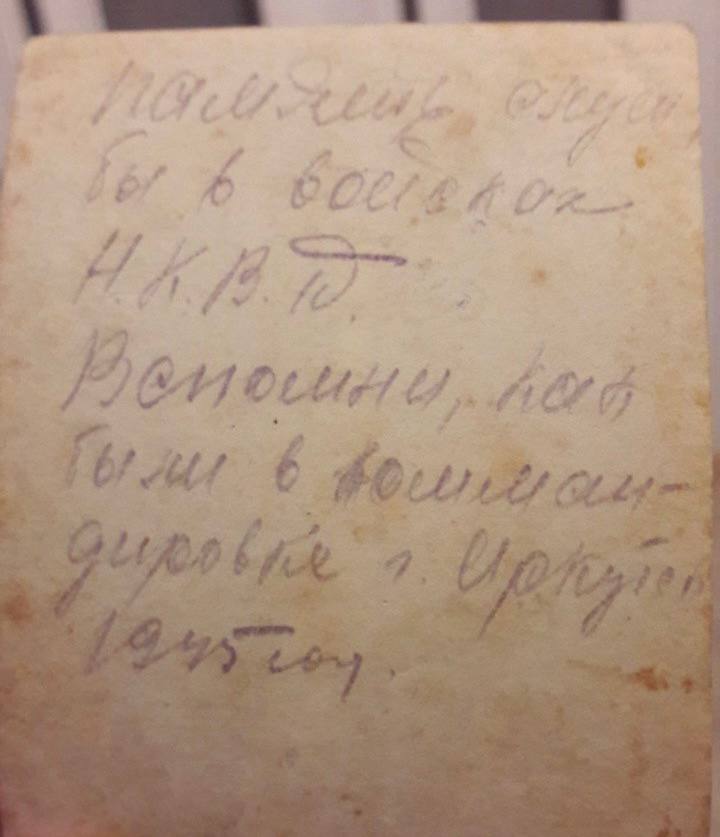 Память служ
бы в войсках
Н.К.В.Д.
Вспомни, как
были в комман-
дировке г. Иркутск
1945 год.